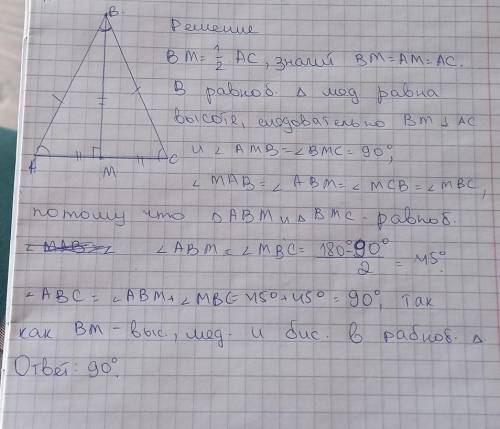 B
Решение
BM = 1/2 AC, значит BM = AM = AC.
В равноб. △ мед равна
высоте, следовательно BM ⊥ AC
и ∠AMB = ∠BMC = 90°,
A M C
∠MAB = ∠ABM = ∠MCB = ∠MBC,
потому что △ABM и △BMC - равноб.
∠ABM = ∠MBC = 180°-90°/2 = 45°.
∠ABC = ∠ABM + ∠MBC = 45° + 45° = 90°, так
как BM - выс, мед. и бис. в равноб. △
Ответ: 90°.